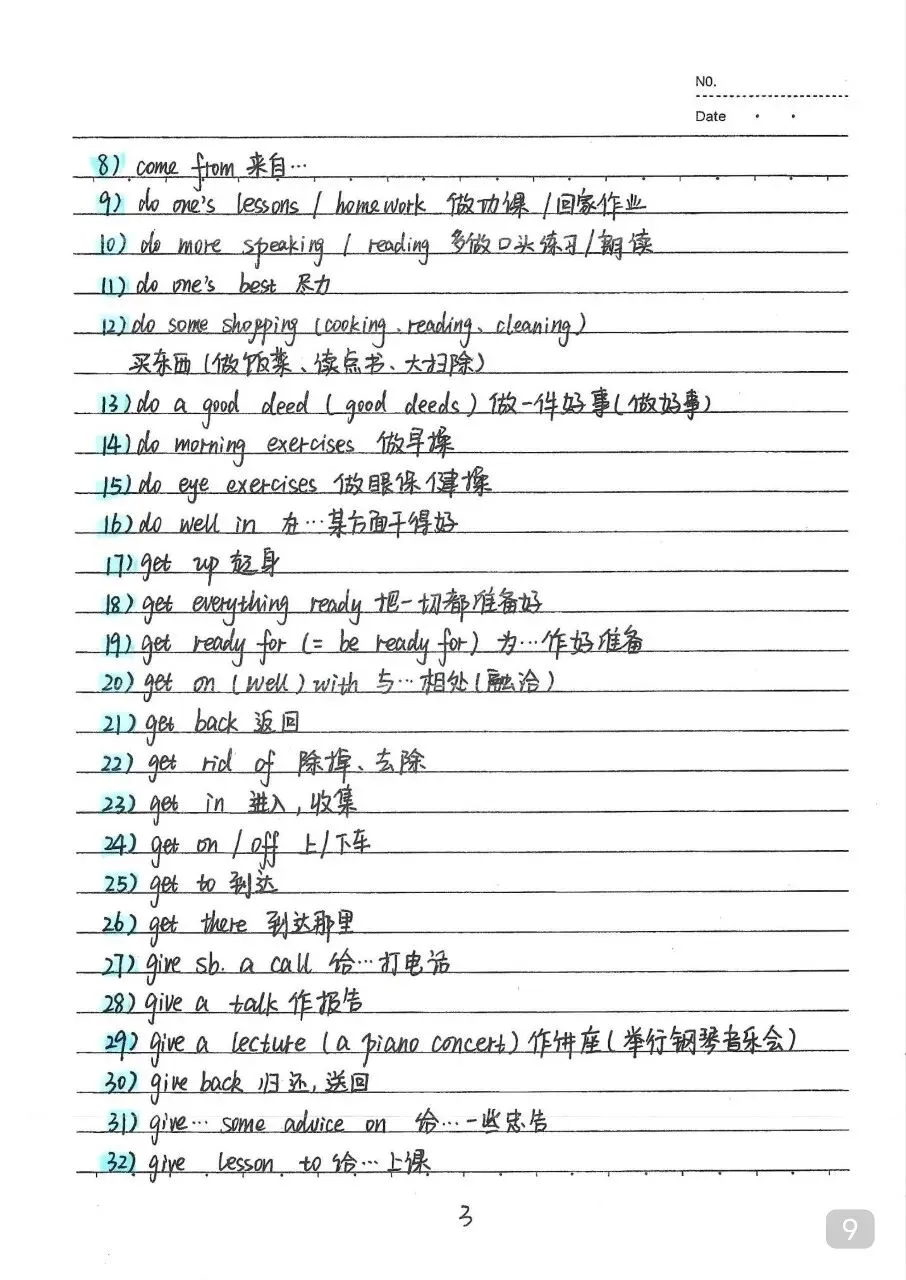 NO.
Date
8) come from 来自…
9) do one's lessons / homework 做功课 / 回家作业
10) do more speaking / reading 多做口头练习 / 朗读
11) do one's best 尽力
12) do some shopping (cooking、reading、cleaning)
买东西 (做饭菜、读点书、大扫除)
13) do a good deed (good deeds) 做一件好事 (做好事)
14) do morning exercises 做早操
15) do eye exercises 做眼保健操
16) do well in 在…某方面干得好
17) get up 起身
18) get everything ready 把一切都准备好
19) get ready for (= be ready for) 为…作好准备
20) get on (well) with 与…相处 (融洽)
21) get back 返回
22) get rid of 除掉、去除
23) get in 进入,收集
24) get on / off 上/下车
25) get to 到达
26) get there 到达那里
27) give sb. a call 给…打电话
28) give a talk 作报告
29) give a lecture (a piano concert) 作讲座 (举行钢琴音乐会)
30) give back 归还,送回
31) give… some advice on 给…一些忠告
32) give lesson to 给…上课
3
9